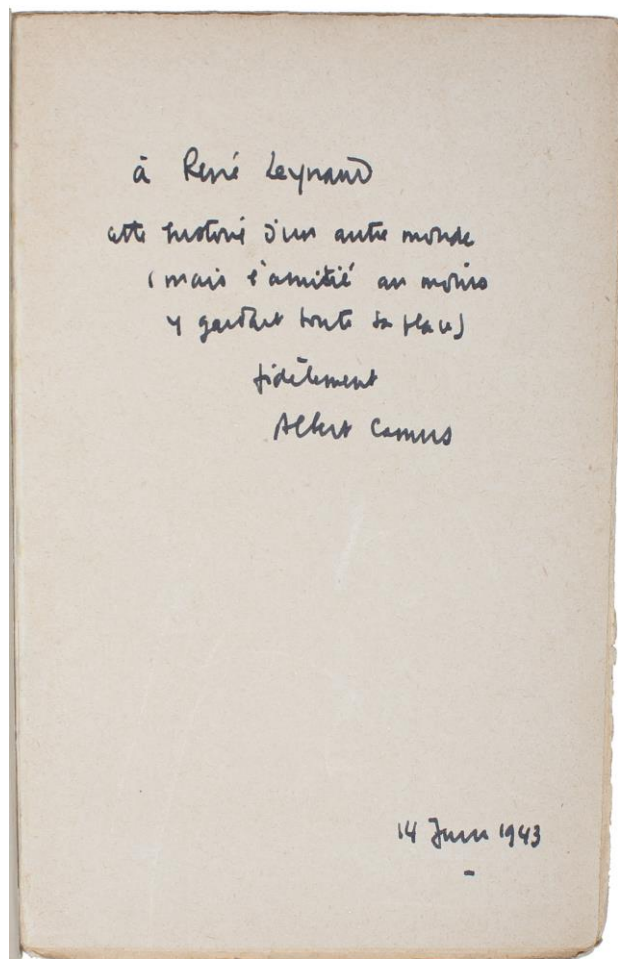 à René Leynaud
cette histoire d'un autre monde
(mais l'amitié au moins
y gardait toute sa place)
fidèlement
Albert Camus
14 Juin 1943